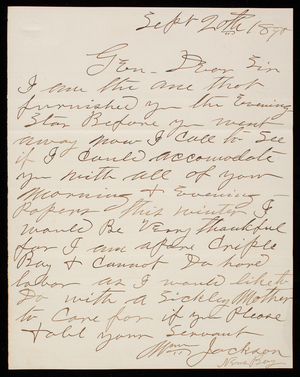 Sept 20th 1890
Gen - Dear Sir
I am the one that
furnished yu the Evening
Star Before yu went
away now I Call to See
if I Could accomodate
yu with all of your
Morning & Evening -
Papers this winter I
would Be Verry thankful
for I am a Criple
Boy & Cannot Do hard
labor as I would like to
Do with a Sickley Mother
to Care for if yu Please
& obl your Servant
Wm Jackson
News Boy